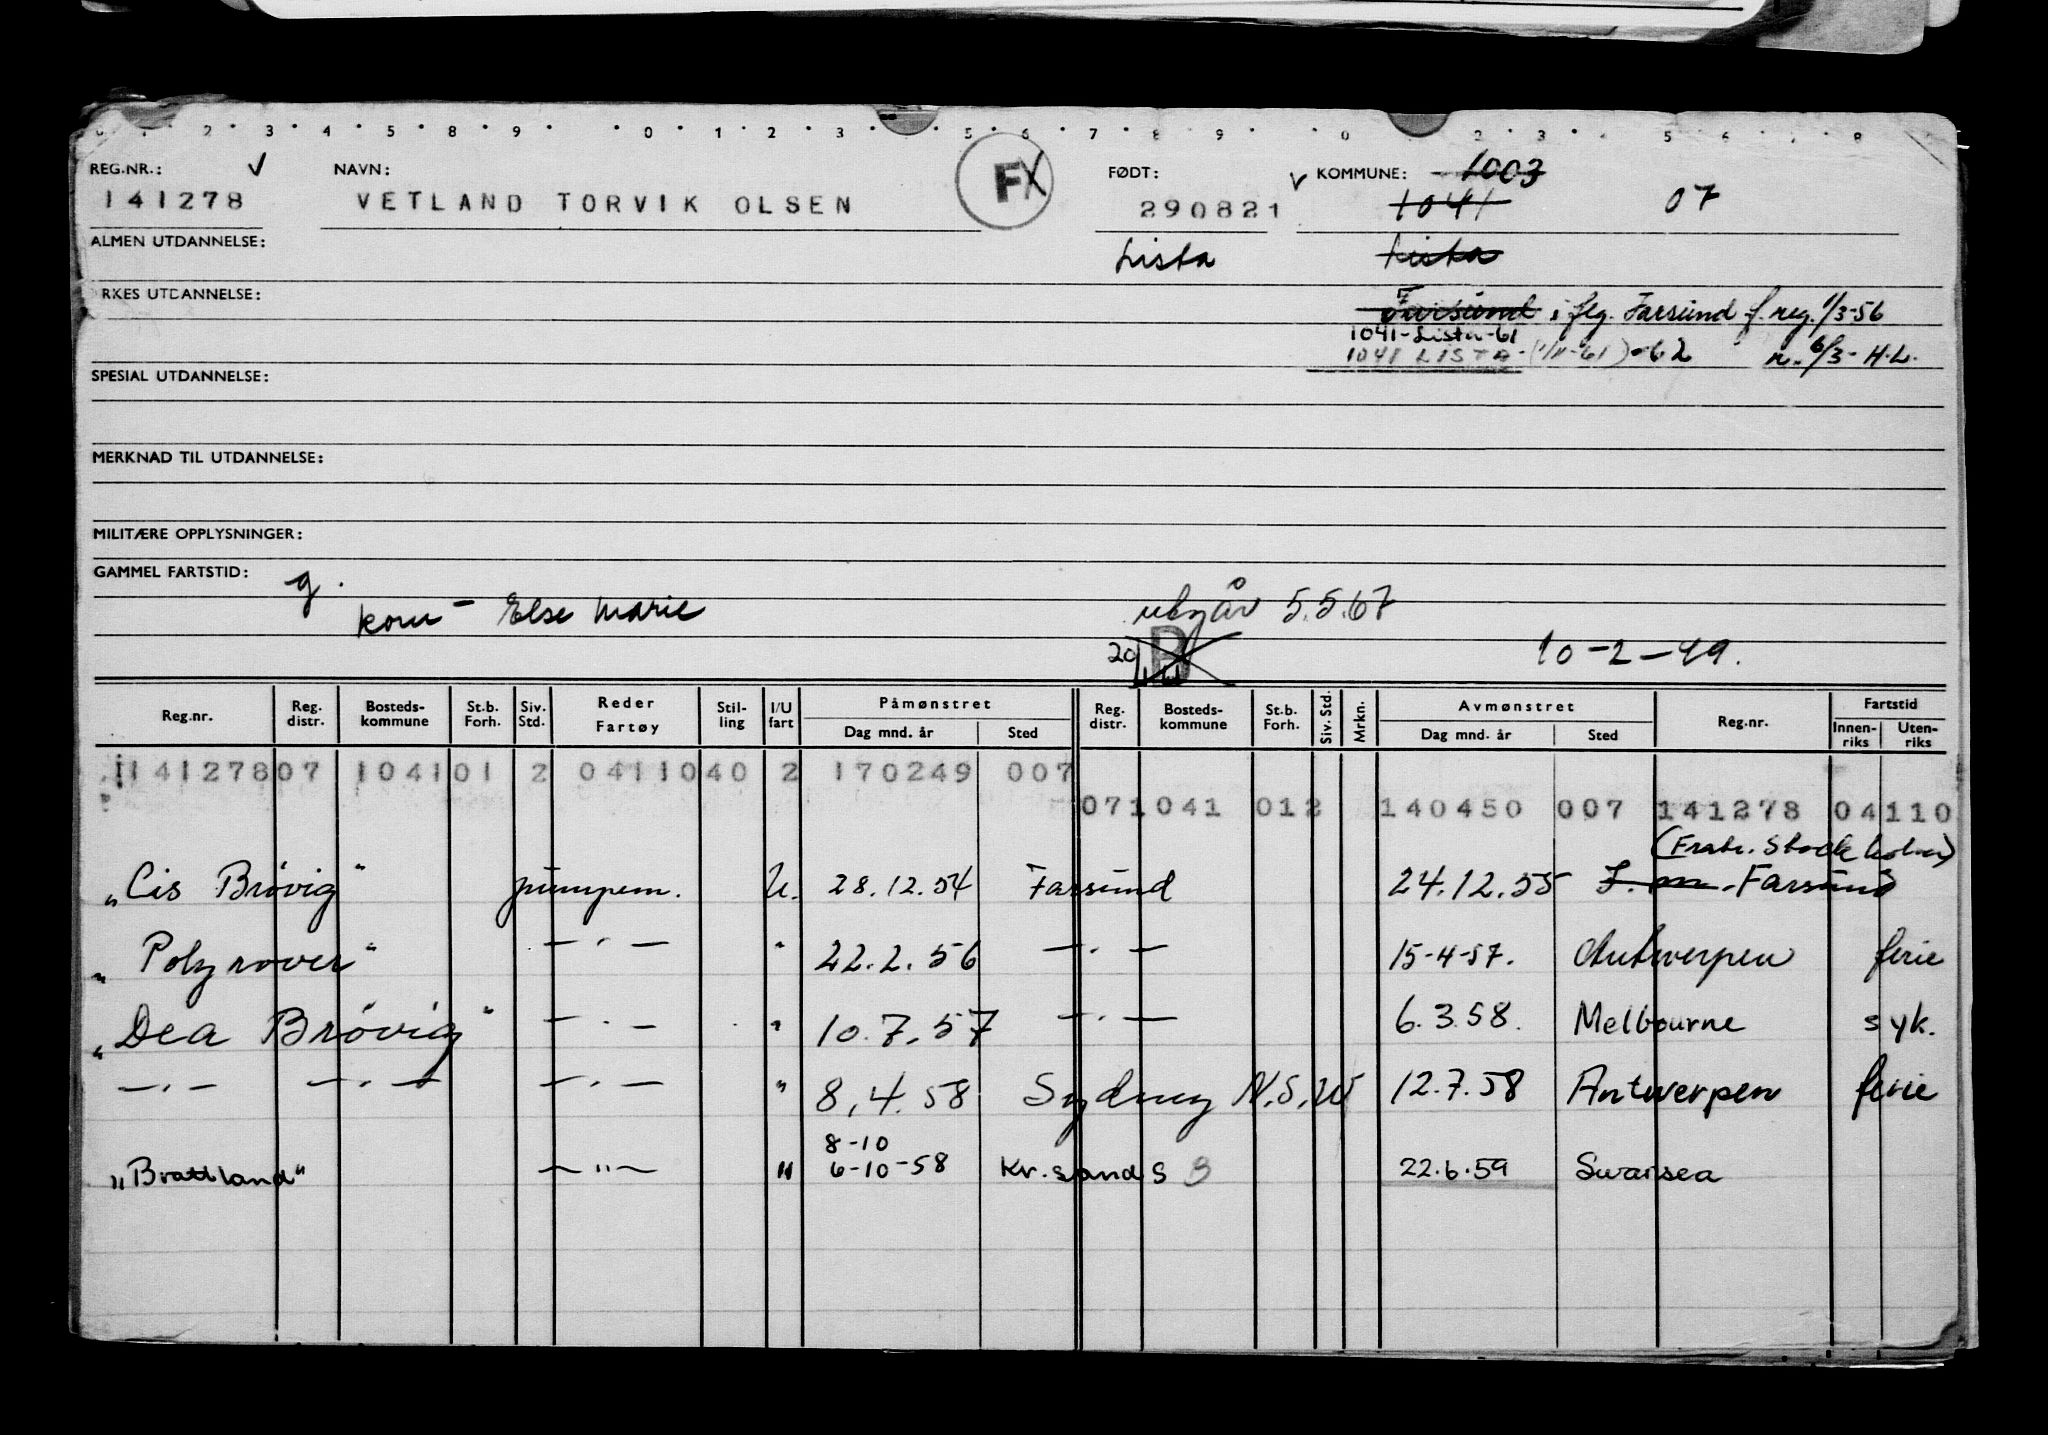 REG.NR.: ✓ NAVN: FX FØDT: ✓ KOMMUNE: 1003
141278 VETLAND TORVIK OLSEN 290821 1041 07
ALMEN UTDANNELSE: Lista Lista
RKES UTDANNELSE: Farsund i flg. Farsund f. reg. 1/3-56
1041-Lista-61
1041 LISTA (1/11-61) -62 n. 6/3- H.L.
SPESIAL UTDANNELSE:
MERKNAD TIL UTDANNELSE:
MILITÆRE OPPLYSNINGER:
GAMMEL FARTSTID: g.
kom - Else Marie utgår 5.5.67
20 B 10-2-49.
Reg.nr. Reg. distr. Bosteds- kommune St.b. Forh. Siv. Std. Reder Fartøy Stil- ling I/U fart Påmønstret Dag mnd. år Sted Reg. distr. Bosteds- kommune St.b. Forh. Siv. Std. Mrkn. Avmønstret Dag mnd. år Sted Reg.nr. Fartstid Innen- riks Uten- riks
141278 07 1041 01 2 04110 40 2 170249 007
07 1041 01 2 140450 007 141278 04110
(Fratr. Stockholm)
"Cis Brøvig" pumpem. U. 28.12.54 Farsund 24.12.55 Farsund
"Polyrover" — . — " 22.2.56 — . — 15-4-57. Antwerpen ferie
"Dea Brøvig" — . — " 10.7.57 — . — 6.3.58. Melbourne syk.
— . — — . — — . — " 8.4.58 Sydney N.S.W 12.7.58 Antwerpen ferie
8-10
"Brattland" — " — " 6-10-58 Kr.sand S B 22.6.59 Swansea